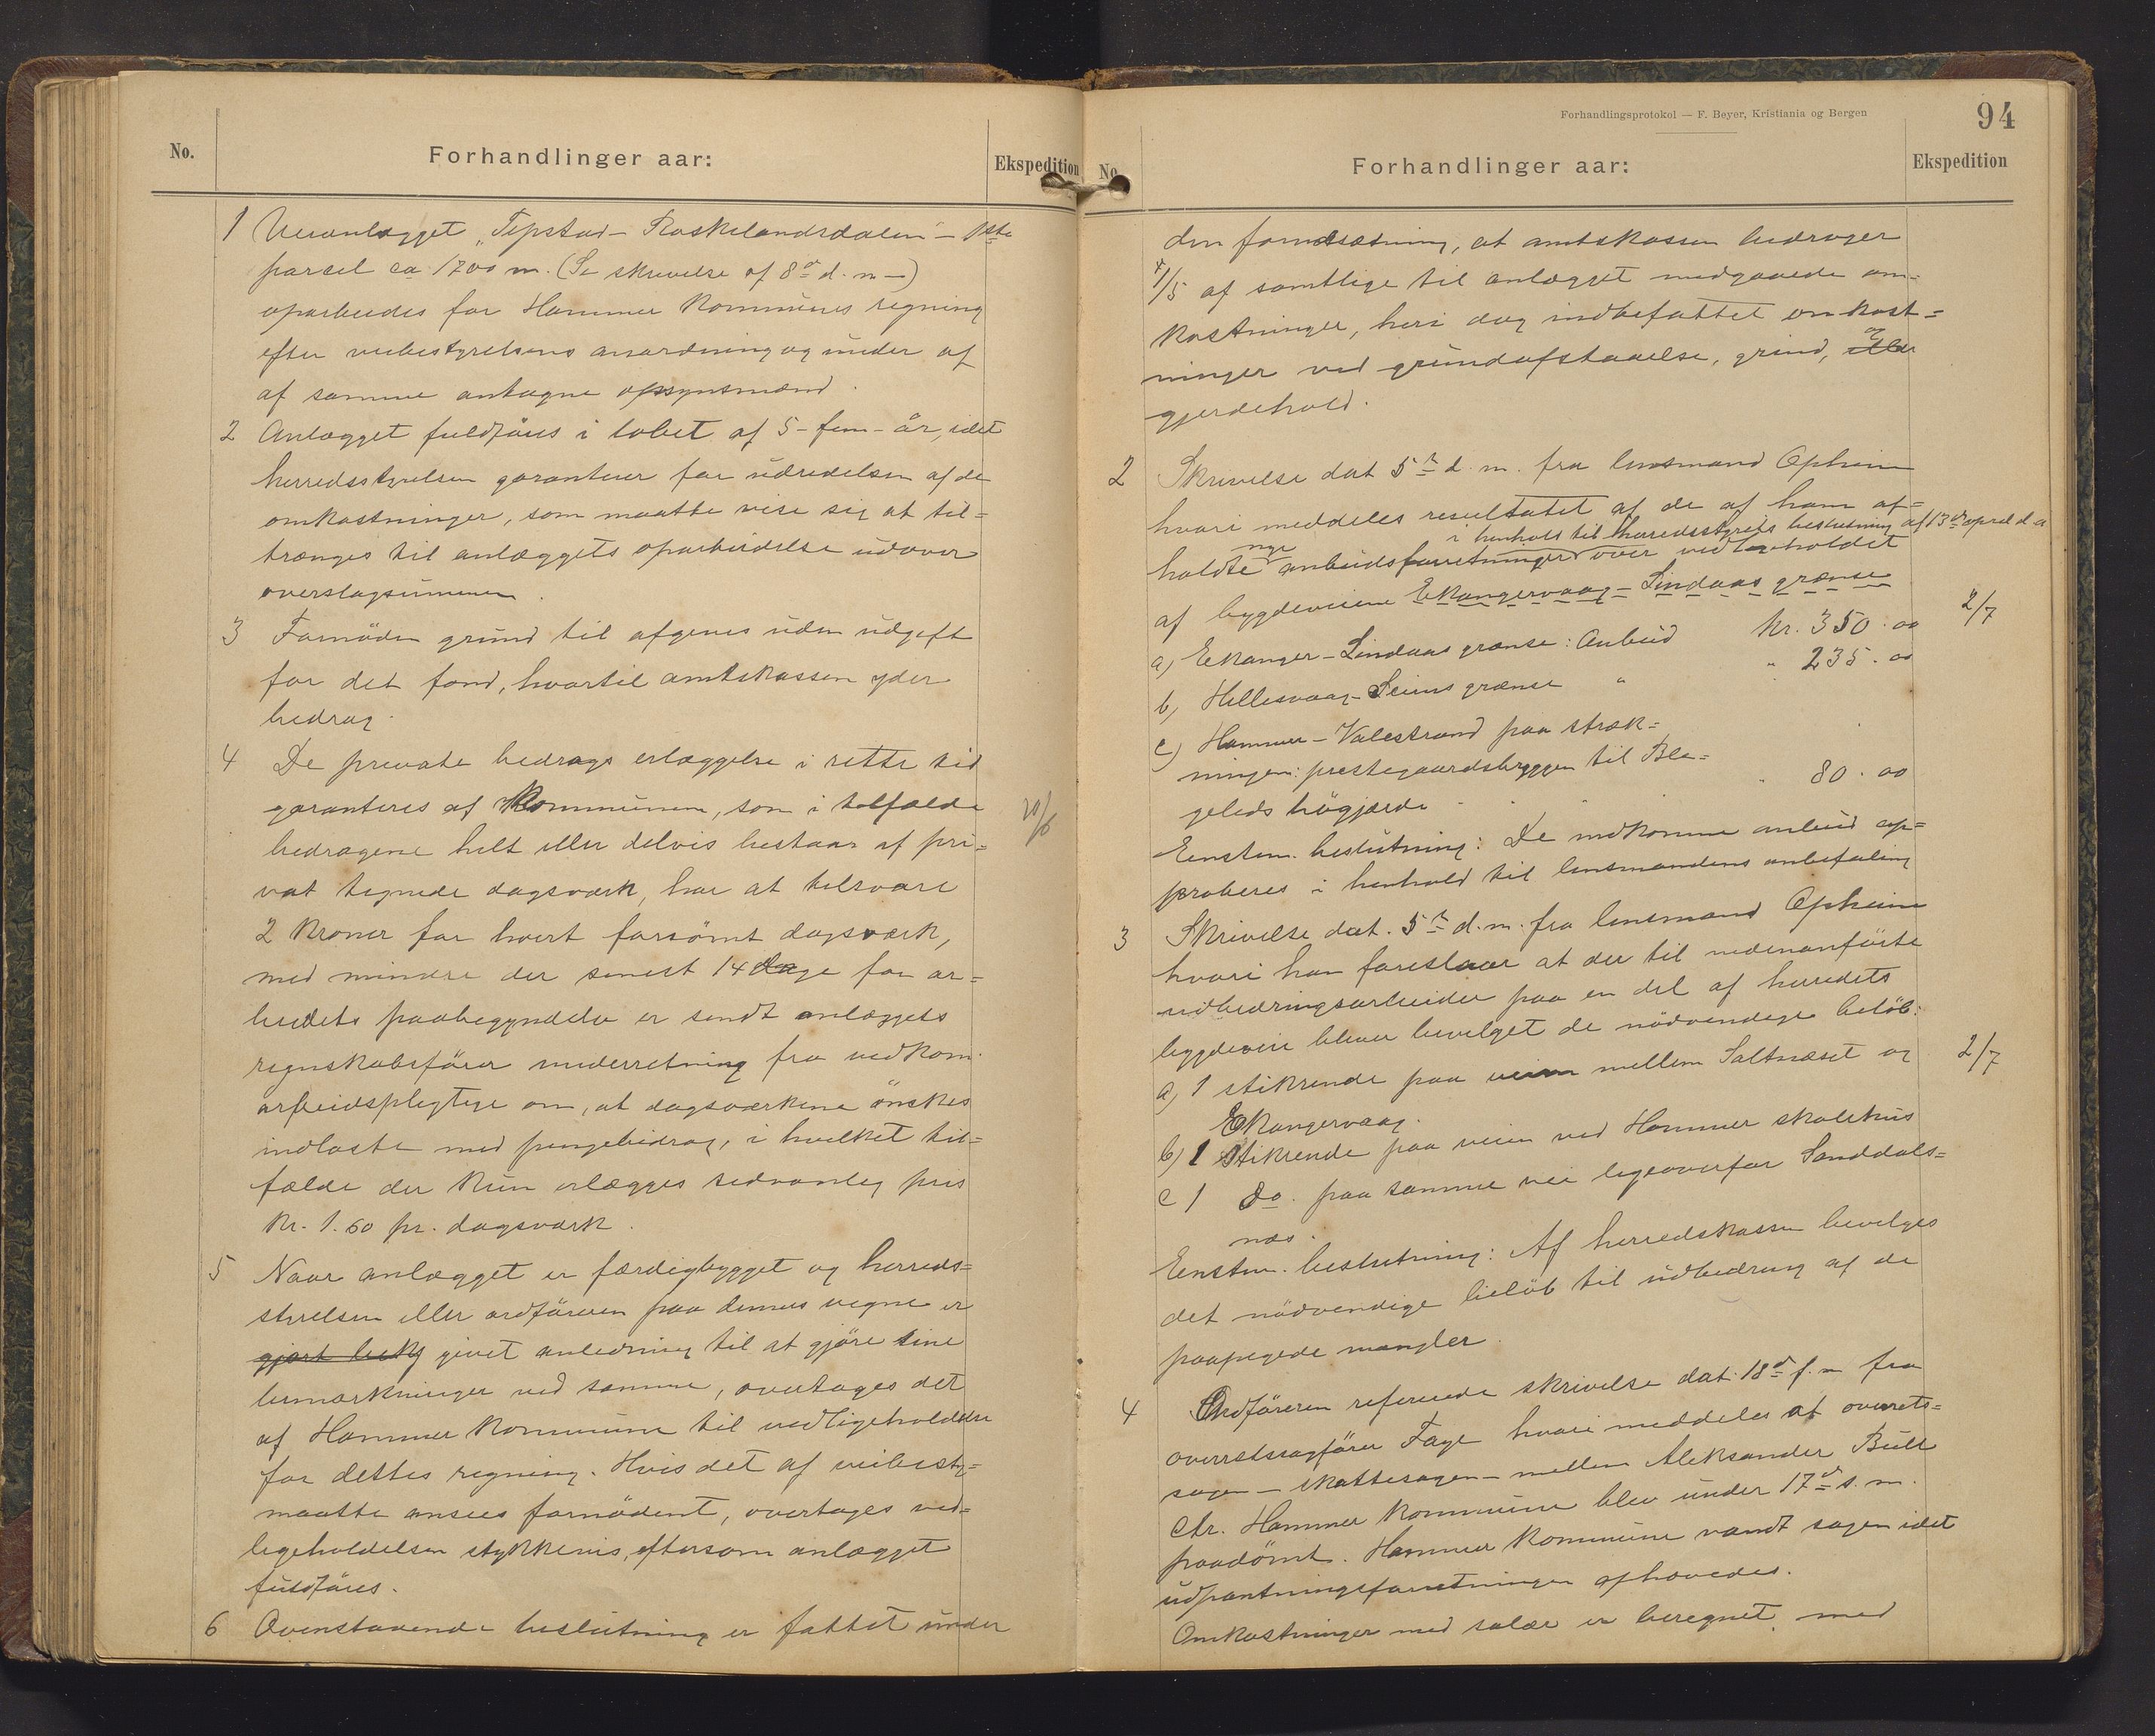 No.
Forhandlinger aar:
Ekspedition
1 Veianlægget „Tepstad - Roskelandsdalen" - 1ste
parcel ca 1700 m. (Se skrivelse af 8de d. m -)
oparbeides for Hammer kommunes regning
efter veibestyrelsens anordning og under af
af samme antagne opsynsmænd.
2 Anlægget fuldføres i løbet af 5 - fem - år, idet
herredsstyrelsen garanterer for udredelsen af de
omkostninger, som maatte vise sig at til=
trænges til anlæggets oparbeidelse udover
overslagsummen.
3 Fornöden grund til afgives uden udgift
for det fond, hvortil amtskassen yder
bedrag.
4 De private bedrags erlæggelse i rette tid
garanteres af Kommunen, som i tilfælde
bedragene helt eller delvis bestaar af pri=
vat tegnede dagsværk, har at tilsvare
2 kroner for hvert forsömt dagsværk,
med mindre der senest 14 dage før ar=
beidets paabegyndelse er sendt anlæggets
regnskabsfører underretning fra vedkom.
arbeidspligtige om, at dagsværkene ønskes
indløste med pengebidrag, i hvilket til=
fælde der kun erlægges sedvanlig pris
kr. 1.60 pr. dagsværk.
5 Naar anlægget er færdigbygget og herreds=
styrelsen eller ordføreren paa dennes vegne er
gjort bek givet anledning til at gjøre sine
bemærkninger ved samme, overtages det
af Hammer kommune til vedligeholdelse
for dettes regning. Hvis det af veibesty=
maatte ansees fornødent, overtages ved=
ligeholdelsen stykkevis, eftersom anlægget
fuldføres.
6 Ovenstaaende beslutning er fattet under
Forhandlingsprotokol — F. Beyer, Kristiania og Bergen
94
No.
Forhandlinger aar:
Ekspedition
den forudsætning, at amtskassen bedrager
4/5 af samtlige til anlægget medgaaede om=
kostninger, heri dog indbefattet omkost=
ninger ved grundafstaaelse, grind, eller og
gjerdehold.
2 Skrivelse dat 5te d. m. fra lensmand Opheim
hvori meddeles resultatet af de af ham af=
i henhold til herredsstyrets beslutning af 13de april d. a
holdte nye anbudsforretninger over vedligeholdet
af bygdeveiene Eekangervaag - Lindaas grænse
2/7
a) Eekanger - Lindaas grænse: Anbud kr. 350.00
b) Hellesvaag - Seims grænse " " 235.00
c) Hammer - Valestrand paa stræk=
ningen: prestegaardsbryggen til Ble=
geleds høgjærde " 80.00
Eenstem. beslutning: De indkomne anbud ap=
proberes i henhold til lensmandens anbefaling
3 Skrivelse dat. 5te d. m. fra lensmand Opheim
hvori han foreslaar at der til nedenanførte
udbedringsarbeider paa en del af herredets
bygdeveie bliver bevilget de nødvendige beløb:
2/7
a) 1 stikrende paa veien mellem Saltnæset og
Eekangervaag.
b) 1 Stikrende paa veien ved Hammer skolehus
c 1 do. paa samme vei ligeoverfor Sanddals=
næs.
Eenstem. beslutning: Af herredskassen bevilges
det nødvendige beløb til udbedring af de
paapegede mangler.
4 Ordføreren refererede skrivelse dat. 18de f. m fra
overretssagfører Fage hvori meddeles at overrets=
sagen - skattesagen - mellem Aleksander Bull
ctr. Hammer kommune blev under 17de s. m.
paadømt. Hammer kommune vandt sagen idet
udpantningsforretningen ophævedes.
Omkostninger med salær er beregnet med